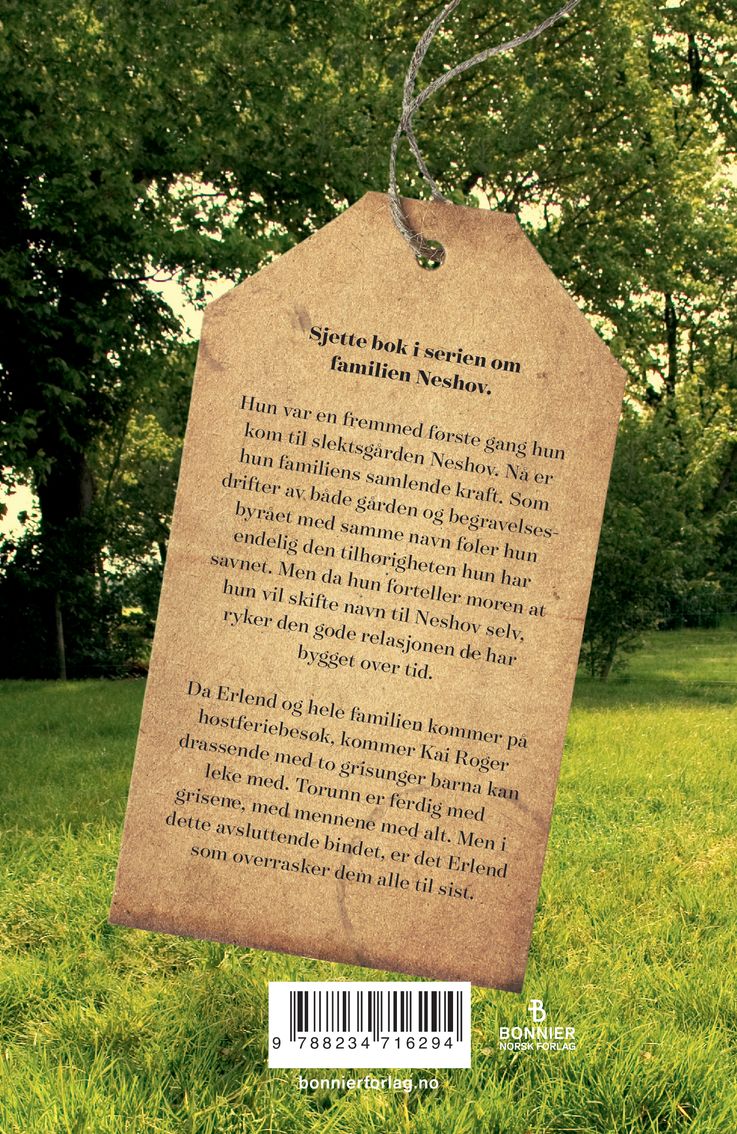 Sjette bok i serien om
familien Neshov.
Hun var en fremmed første gang hun
kom til slektsgården Neshov. Nå er
hun familiens samlende kraft. Som
drifter av både gården og begravelses-
byrået med samme navn føler hun
endelig den tilhørigheten hun har
savnet. Men da hun forteller moren at
hun vil skifte navn til Neshov selv,
ryker den gode relasjonen de har
bygget over tid.
Da Erlend og hele familien kommer på
høstferiebesøk, kommer Kai Roger
drassende med to grisunger barna kan
leke med. Torunn er ferdig med
grisene, med mennene med alt. Men i
dette avsluttende bindet, er det Erlend
som overrasker dem alle til sist.
9 788234 716294
BONNIER
NORSK FORLAG
bonnierforlag.no